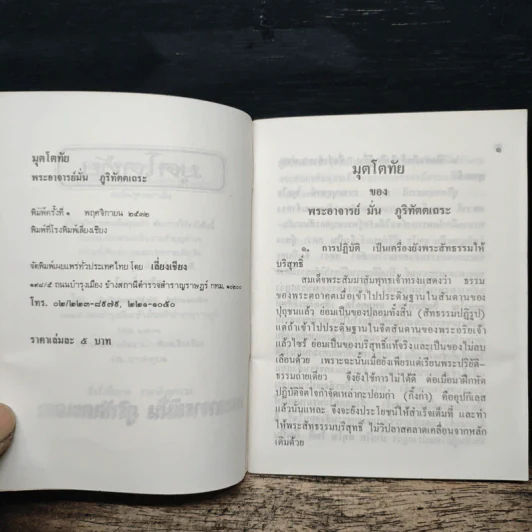 มุตโตทัย
พระอาจารย์มั่น ภูริทัตตเถระ
พิมพ์ครั้งที่ ๑ พฤศจิกายน ๒๕๓๒
พิมพ์ที่โรงพิมพ์เลี่ยงเชียง
จัดพิมพ์เผยแพร่ทั่วประเทศไทย โดย เลี่ยงเชียง
ถนนบำรุงเมือง ข้างสถานีตำรวจสำราญราษฎร์ กทม. ๑๐๒๐๐
โทร. ๐๒/๒๒๓-๘๙๗๙, ๒๒๑-๑๐๕๐
ราคาเล่มละ ๕ บาท
๑
มุตโตทัย
ของ
พระอาจารย์ มั่น ภูริทัตตเถระ
๑. การปฏิบัติ เป็นเครื่องยังพระสัทธรรมให้
บริสุทธิ์
สมเด็จพระสัมมาสัมพุทธเจ้าทรงแสดงว่า ธรรม
ของพระตถาคตเมื่อเข้าไปประดิษฐานในสันดานของ
ปุถุชนแล้ว ย่อมเป็นของปลอมทั้งสิ้น (สัทธรรมปฏิรูป)
แต่ถ้าเข้าไปประดิษฐานในจิตสันดานของพระอริยเจ้า
แล้วไซร้ ย่อมเป็นของบริสุทธิ์แท้จริงและเป็นของไม่ลบ
เลือนด้วย เพราะฉะนั้นเมื่อยังเพียรแต่เรียนพระปริยัติ-
ธรรมถ่ายเดียว จึงยังใช้การไม่ได้ดี ต่อเมื่อมาฝึกหัด
ปฏิบัติจิตใจกำจัดเหล่ากะปอมก่า (กิ้งก่า) คืออุปกิเลส
แล้วนั่นแหละ จึงจะยังประโยชน์ให้สำเร็จเต็มที่ และทำ
ให้พระสัทธรรมบริสุทธิ์ ไม่วิปลาสคลาดเคลื่อนจากหลัก
เดิมด้วย